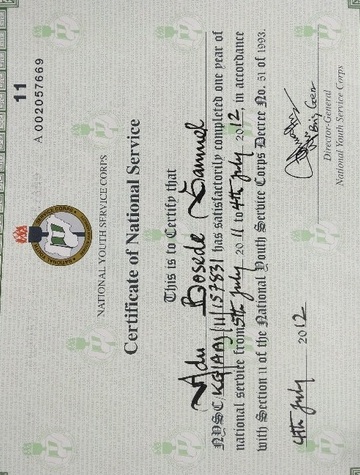 11
A 002057669
NATIONAL YOUTH SERVICE CORPS
Certificate of National Service
This is to Certify that
Adu Bosede Samuel
NYSC/KG/AAJ/11/157831 has satisfactorily completed one year of
national service from 5th July 2011 to 4th July 2012, in accordance
with Section 11 of the National Youth Service Corps Decree No. 51 of 1993.
4th July 2012
Brig Gen
Director-General
National Youth Service Corps